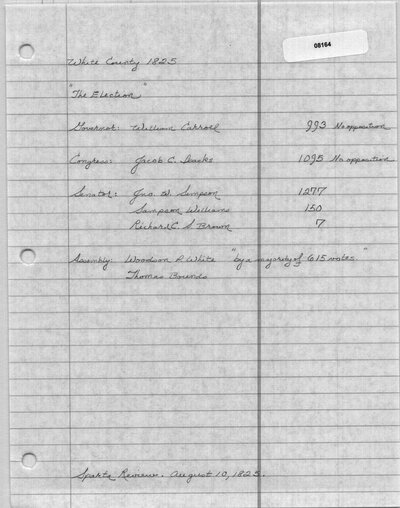 08164
White County 1825
"The Election"
Governor: William Carroll 993 No opposition
Congress: Jacob C. Isacks 1095 No opposition
Senator: Jno. W. Simpson 1277
Sampson Williams 150
Richard C. S. Brown 7
Assembly: Woodson P. White "by a majority of 615 votes."
Thomas Bounds
Sparta Review. August 10, 1825.